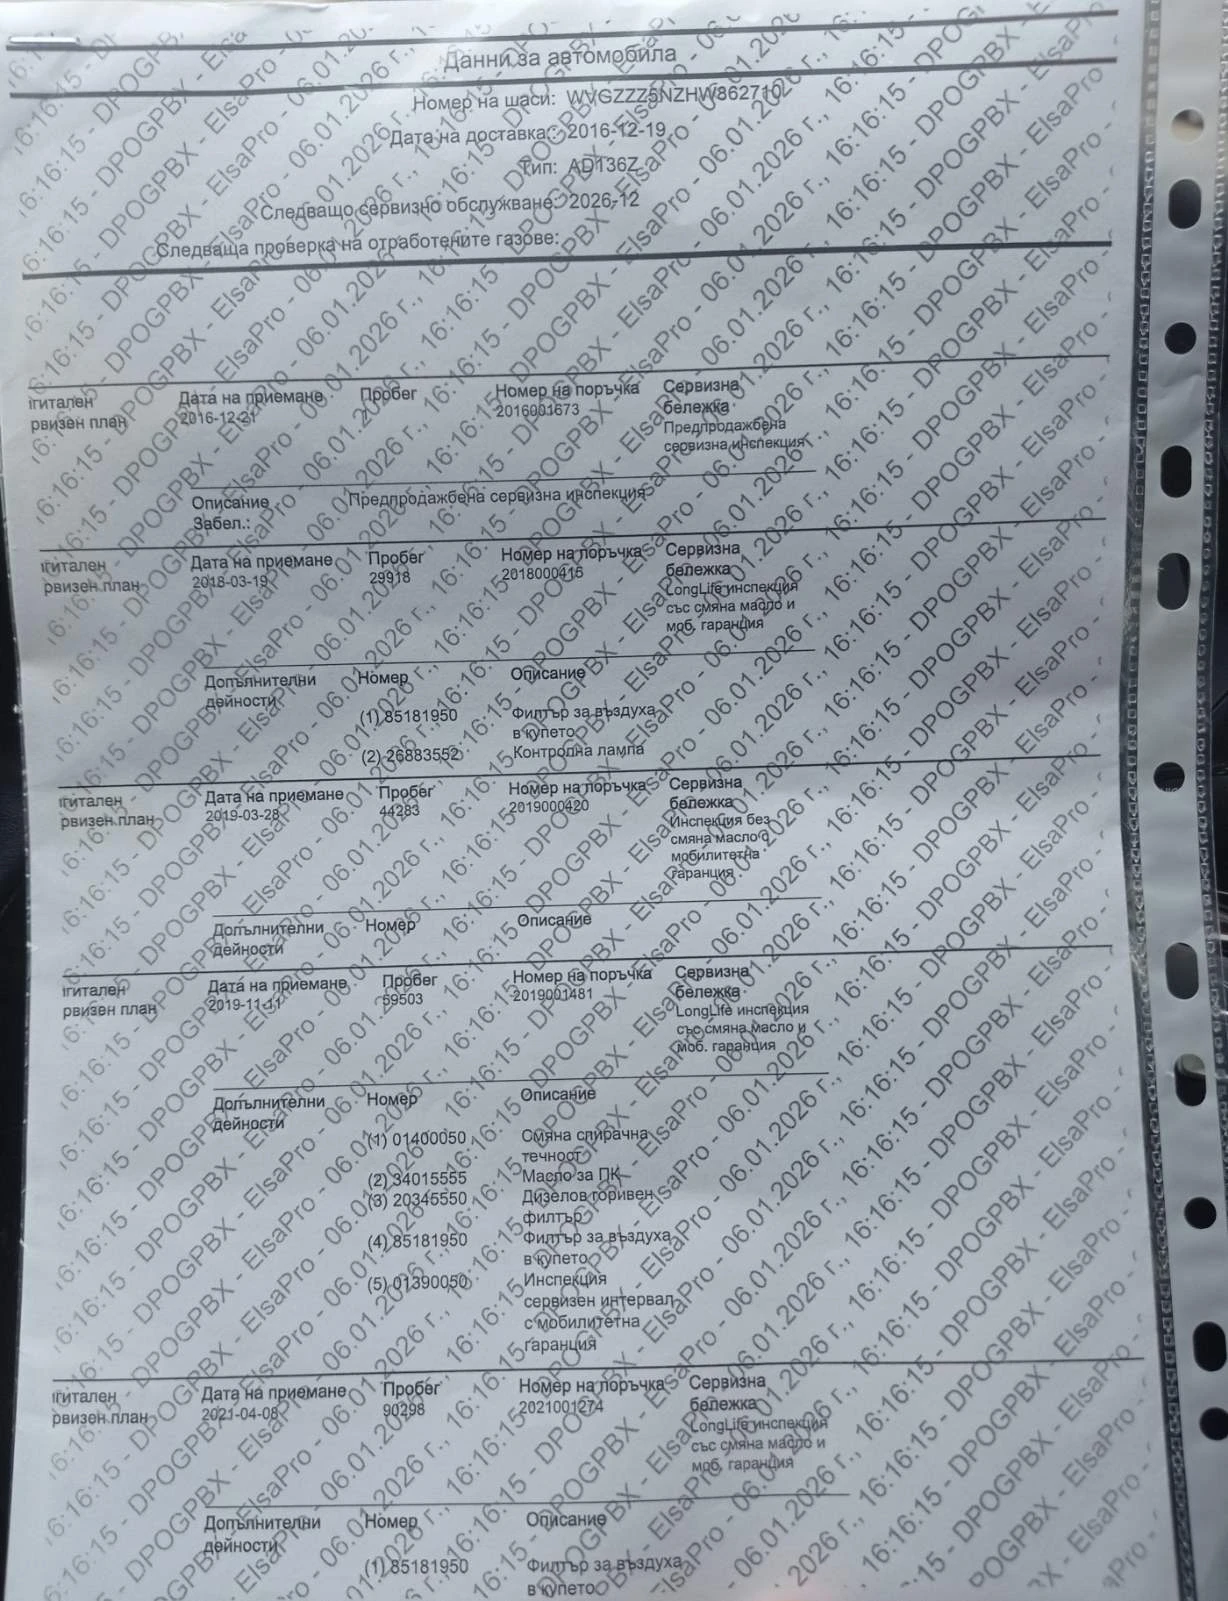 Данни за автомобила
Номер на шаси: WVGZZZ5NZHW862710
Дата на доставка: 2016-12-19
Тип: AD136Z
Следващо сервизно обслужване: 2026-12
Следваща проверка на отработените газове:
игитален рвизен план
Дата на приемане Пробег Номер на поръчка Сервизна бележка
2016-12-21 2016001673 Предпродажбена сервизна инспекция
Описание Предпродажбена сервизна инспекция
Забел.:
игитален рвизен план
Дата на приемане Пробег Номер на поръчка Сервизна бележка
2018-03-19 29918 2018000415 LongLife инспекция
със смяна масло и
моб. гаранция
Допълнителни дейности Номер Описание
(1) 85181950 Филтър за въздуха
в купето
(2) 26883552 Контролна лампа
игитален рвизен план
Дата на приемане Пробег Номер на поръчка Сервизна бележка
2019-03-28 44283 2019000420 Инспекция без
смяна масло с
мобилитетна
гаранция
Допълнителни дейности Номер Описание
игитален рвизен план
Дата на приемане Пробег Номер на поръчка Сервизна бележка
2019-11-11 59503 2019001481 LongLife инспекция
със смяна масло и
моб. гаранция
Допълнителни дейности Номер Описание
(1) 01400050 Смяна спирачна
течност
(2) 34015555 Масло за ПК
(3) 20345550 Дизелов горивен
филтър
(4) 85181950 Филтър за въздуха
в купето
(5) 01390050 Инспекция
сервизен интервал
с мобилитетна
гаранция
игитален рвизен план
Дата на приемане Пробег Номер на поръчка Сервизна бележка
2021-04-08 90298 2021001274 LongLife инспекция
със смяна масло и
моб. гаранция
Допълнителни дейности Номер Описание
(1) 85181950 Филтър за въздуха
в купето
16:16:15 - DPOGPBX - ElsaPro - 06.01.2026 г.,